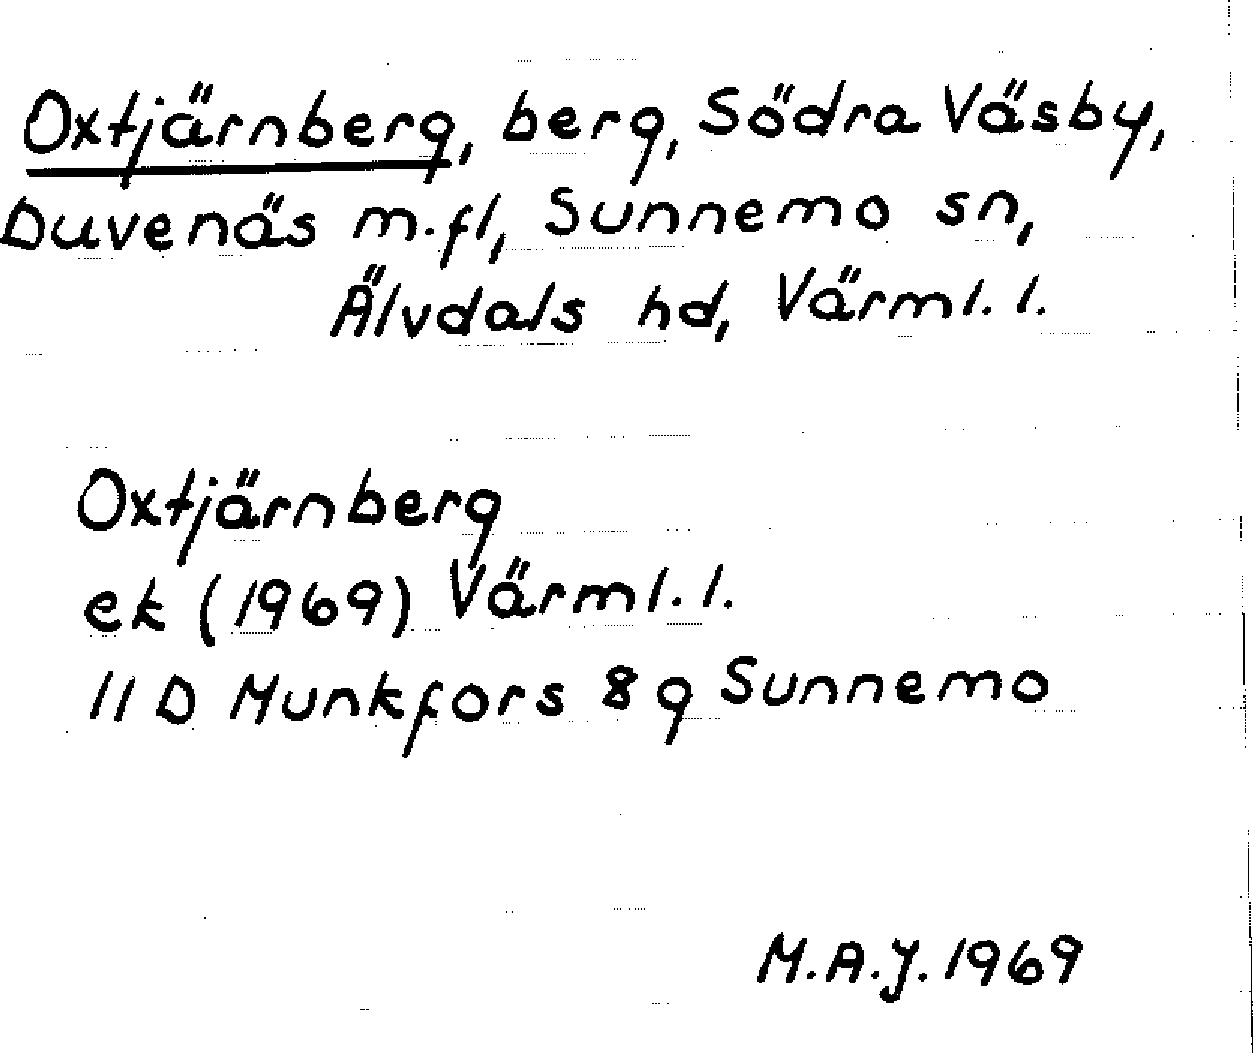 Oxtjärnberg, berg, Södra Väsby,
Duvenäs m.fl, Sunnemo sn,
Älvdals hd, Värml. l.
Oxtjärnberg
ek (1969) Värml. l.
11 D Munkfors 8 g Sunnemo
M.A.J. 1969